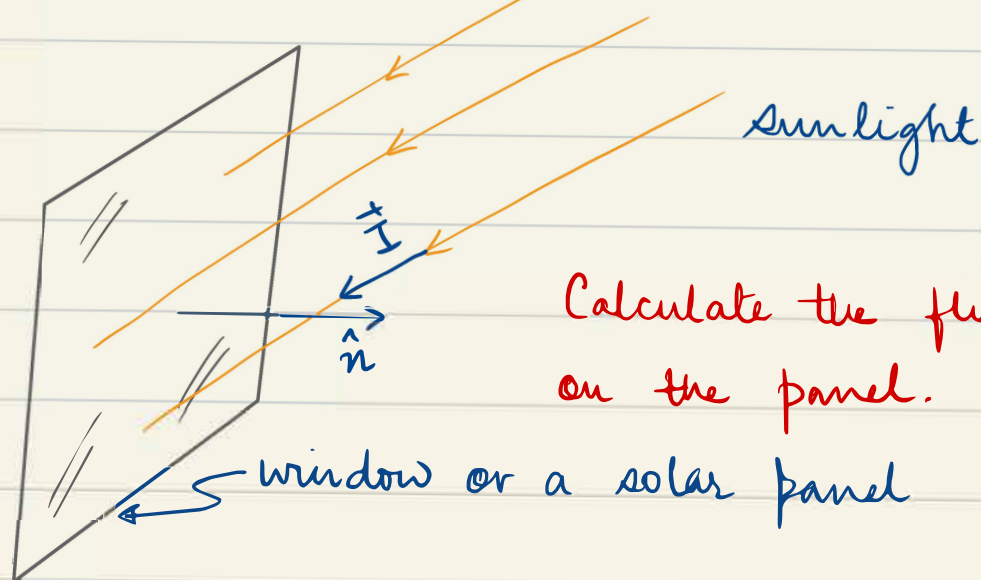 sunlight
I
n̂
Calculate the
on the panel.
window or a solar panel